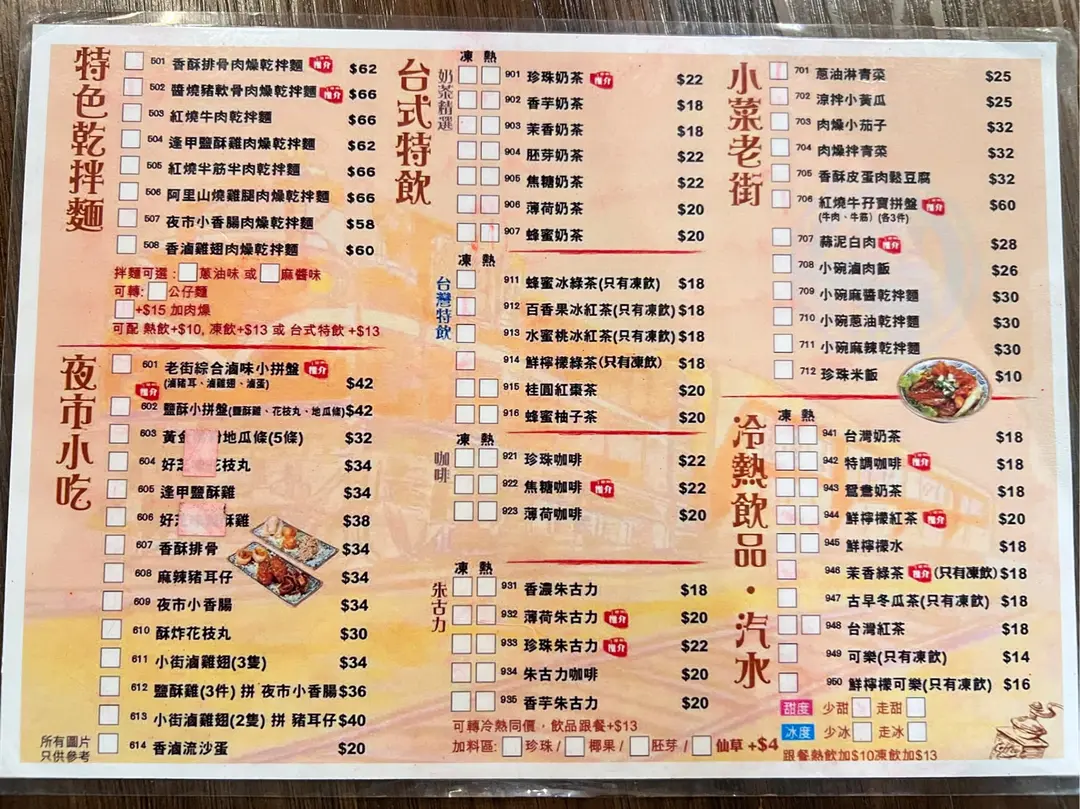 特色乾拌麵
501 香酥排骨肉燥乾拌麵 推介 $62
502 醬燒豬軟骨肉燥乾拌麵 推介 $66
503 紅燒牛肉乾拌麵 $66
504 逢甲鹽酥雞肉燥乾拌麵 $62
505 紅燒半筋半肉乾拌麵 $66
506 阿里山燒雞腿肉燥乾拌麵 $66
507 夜市小香腸肉燥乾拌麵 $58
508 香滷雞翅肉燥乾拌麵 $60
拌麵可選：蔥油味 或 麻醬味
可轉：公仔麵
+$15 加肉燥
可配 熱飲+$10, 凍飲+$13 或 台式特飲 +$13
夜市小吃
601 老街綜合滷味小拼盤 推介
(滷豬耳、滷雞翅、滷蛋) $42
推介
602 鹽酥小拼盤(鹽酥雞、花枝丸、地瓜條) $42
603 黃金 地瓜條(5條) $32
604 好 花枝丸 $34
605 逢甲鹽酥雞 $34
606 好 酥雞 $38
607 香酥排骨 $34
608 麻辣豬耳仔 $34
609 夜市小香腸 $34
610 酥炸花枝丸 $30
611 小街滷雞翅(3隻) $34
612 鹽酥雞(3件) 拼 夜市小香腸 $36
613 小街滷雞翅(2隻) 拼 豬耳仔 $40
614 香滷流沙蛋 $20
所有圖片
只供參考
台式特飲
奶茶精選
凍 熱
901 珍珠奶茶 推介 $22
902 香芋奶茶 $18
903 茉香奶茶 $18
904 胚芽奶茶 $22
905 焦糖奶茶 $22
906 薄荷奶茶 $20
907 蜂蜜奶茶 $20
台灣特飲
凍 熱
911 蜂蜜冰綠茶(只有凍飲) $18
912 百香果冰紅茶(只有凍飲) $18
913 水蜜桃冰紅茶(只有凍飲) $18
914 鮮檸檬綠茶(只有凍飲) $18
915 桂圓紅棗茶 $20
916 蜂蜜柚子茶 $20
咖啡
凍 熱
921 珍珠咖啡 $22
922 焦糖咖啡 推介 $22
923 薄荷咖啡 $20
朱古力
凍 熱
931 香濃朱古力 $18
932 薄荷朱古力 推介 $20
933 珍珠朱古力 推介 $22
934 朱古力咖啡 $20
935 香芋朱古力 $20
可轉冷熱同價，飲品跟餐+$13
加料區: 珍珠 / 椰果 / 胚芽 / 仙草 +$4
小菜老街
701 蔥油淋青菜 $25
702 涼拌小黃瓜 $25
703 肉燥小茄子 $32
704 肉燥拌青菜 $32
705 香酥皮蛋肉鬆豆腐 $32
706 紅燒牛孖寶拼盤 推介 $60
(牛肉、牛筋）(各3件)
707 蒜泥白肉 推介 $28
708 小碗滷肉飯 $26
709 小碗麻醬乾拌麵 $30
710 小碗蔥油乾拌麵 $30
711 小碗麻辣乾拌麵 $30
712 珍珠米飯 $10
冷熱飲品・汽水
凍 熱
941 台灣奶茶 $18
942 特調咖啡 推介 $18
943 鴛鴦奶茶 $18
944 鮮檸檬紅茶 推介 $20
945 鮮檸檬水 $18
946 茉香綠茶 推介 (只有凍飲) $18
947 古早冬瓜茶(只有凍飲) $18
948 台灣紅茶 $18
949 可樂(只有凍飲) $14
950 鮮檸檬可樂(只有凍飲) $16
甜度 少甜 走甜
冰度 少冰 走冰
跟餐熱飲加$10凍飲加$13
Coffee